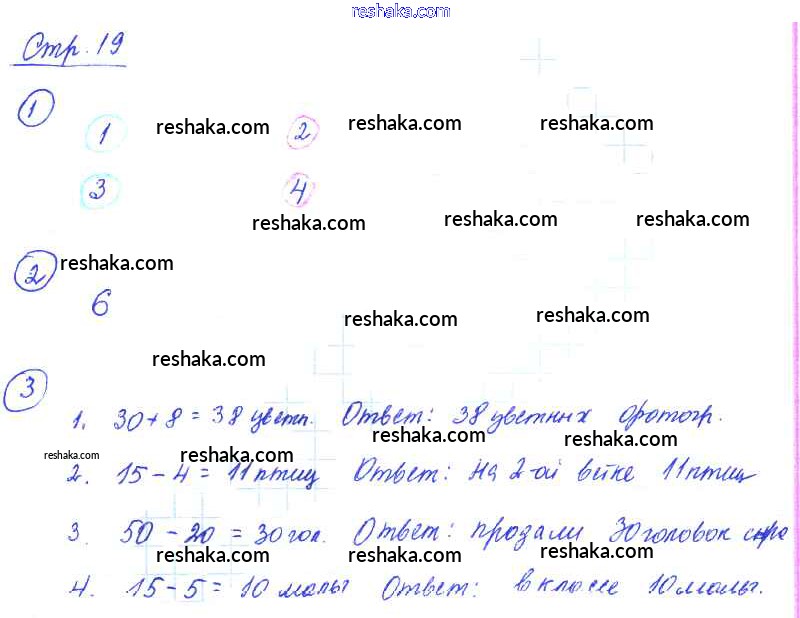 reshaka.com
Стр. 19
1
1 reshaka.com 2 reshaka.com reshaka.com
3 4
reshaka.com reshaka.com reshaka.com
2 reshaka.com
6
reshaka.com reshaka.com
reshaka.com
3
1. 30+8=38 цветн. Ответ: 38 цветных фотогр.
reshaka.com reshaka.com reshaka.com reshaka.com
2. 15-4=11 птиц Ответ: на 2-ой ветке 11 птиц
3. 50-20=30 гол. Ответ: прозали 30 головок сыра
reshaka.com reshaka.com reshaka.com
4. 15-5=10 мальч Ответ: в классе 10 мальч.